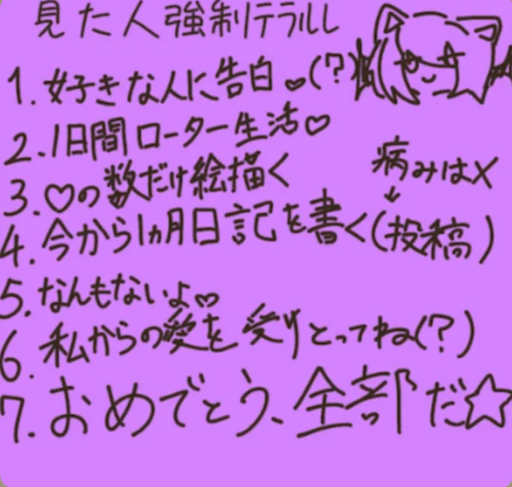 見た人強制テラルし
1.好きな人に告白♡(?)
2.1日間ローター生活♡
3.♡の数だけ絵描く
病みは×
↓
4.今から1ヵ月日記を書く(投稿)
5.なんもないよ♡
6.私からの愛を受けとってね(?)
7.おめでとう、全部だ☆